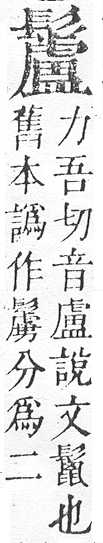 䰕
力吾切音盧說文鬣也
舊本譌作分爲二